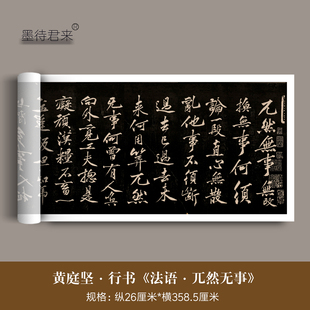 墨待君来
兀然無事無改
換無事何須
論一段直心無散
亂他事不須斷
過去已過去未
來何用算兀然
無事何曾有人喚
向外覓工夫總是
癡頑漢糧不畜一
黄庭坚·行书《法语·兀然无事》
规格：纵26厘米*横358.5厘米